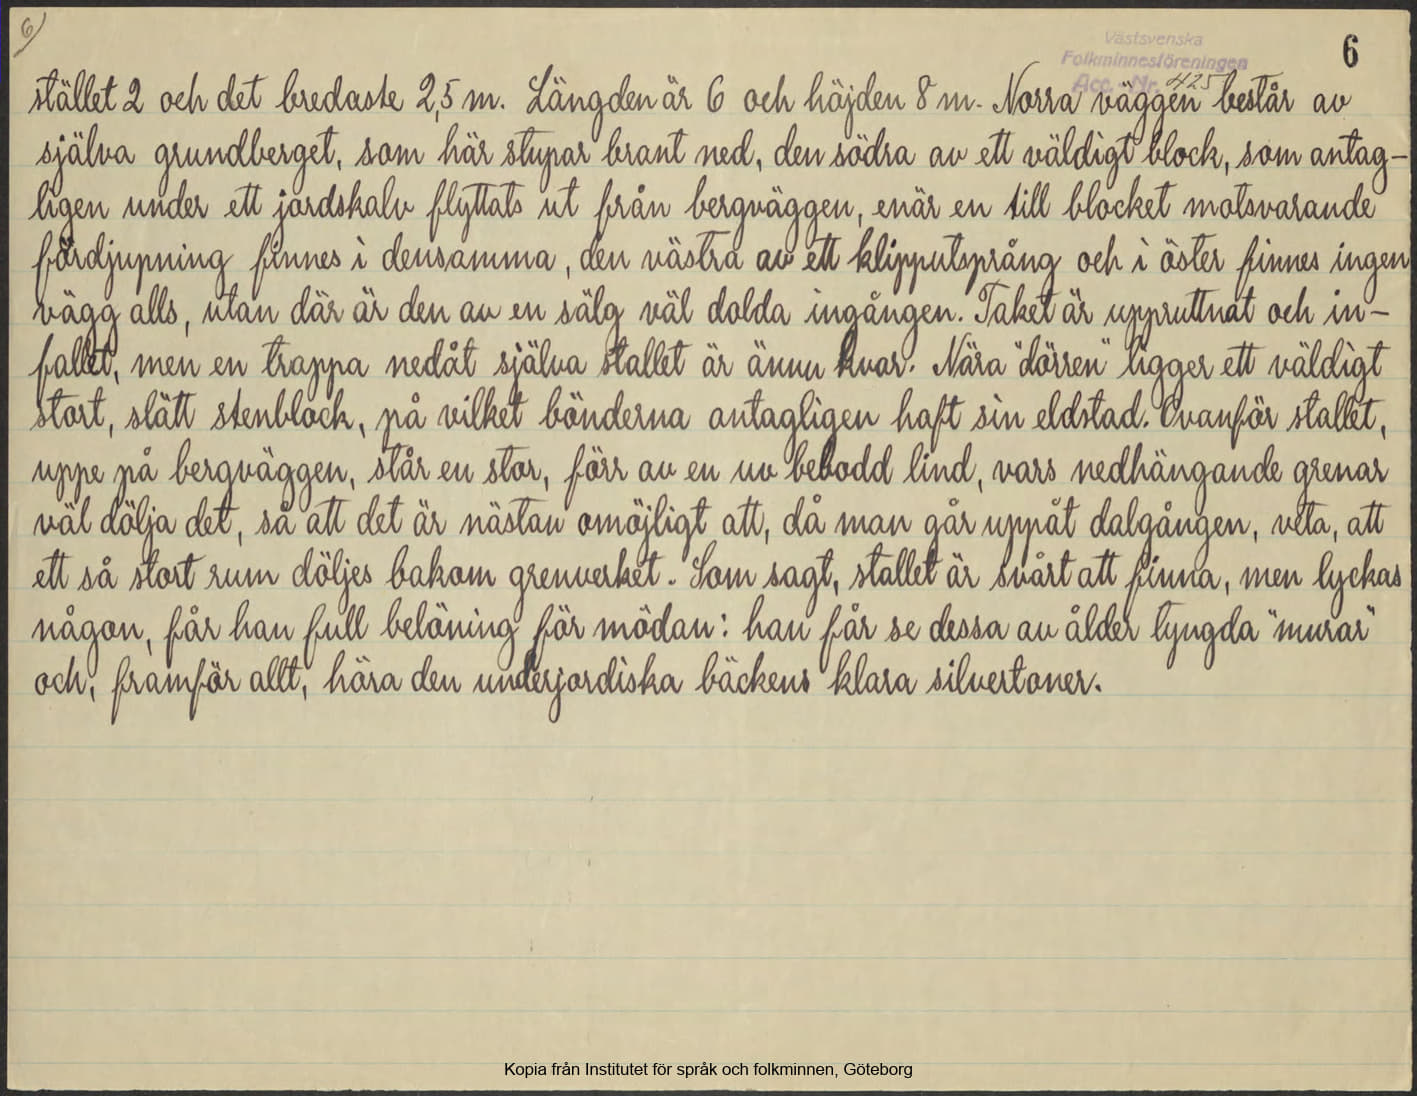 6)
Västsvenska
Folkminnesföreningen
Acc. Nr. 425
6
stället 2 och det bredaste 2,5 m. Längden är 6 och höjden 8 m. Norra väggen består av
själva grundberget, som här stupar brant ned, den södra av ett väldigt block, som antag-
ligen under ett jordskalv flyttats ut från bergväggen, enär en till blocket motsvarande
fördjupning finnes i densamma, den västra av ett klipputsprång och i öster finnes ingen
vägg alls, utan där är den av en sälg väl dolda ingången. Taket är uppruttnat och in-
fallet, men en trappa nedåt själva stallet är ännu kvar. Nära "dörren" ligger ett väldigt
stort, slätt stenblock, på vilket bönderna antagligen haft sin eldstad. Ovanför stallet,
uppe på bergväggen, står en stor, förr av en uv bebodd lind, vars nedhängande grenar
väl dölja det, så att det är nästan omöjligt att, då man går uppåt dalgången, veta, att
ett så stort rum döljes bakom grenverket. Som sagt, stallet är svårt att finna, men lyckas
någon, får han full belöning för mödan: han får se dessa av ålder tyngda "murar"
och, framför allt, höra den underjordiska bäckens klara silvertoner.
Kopia från Institutet för språk och folkminnen, Göteborg